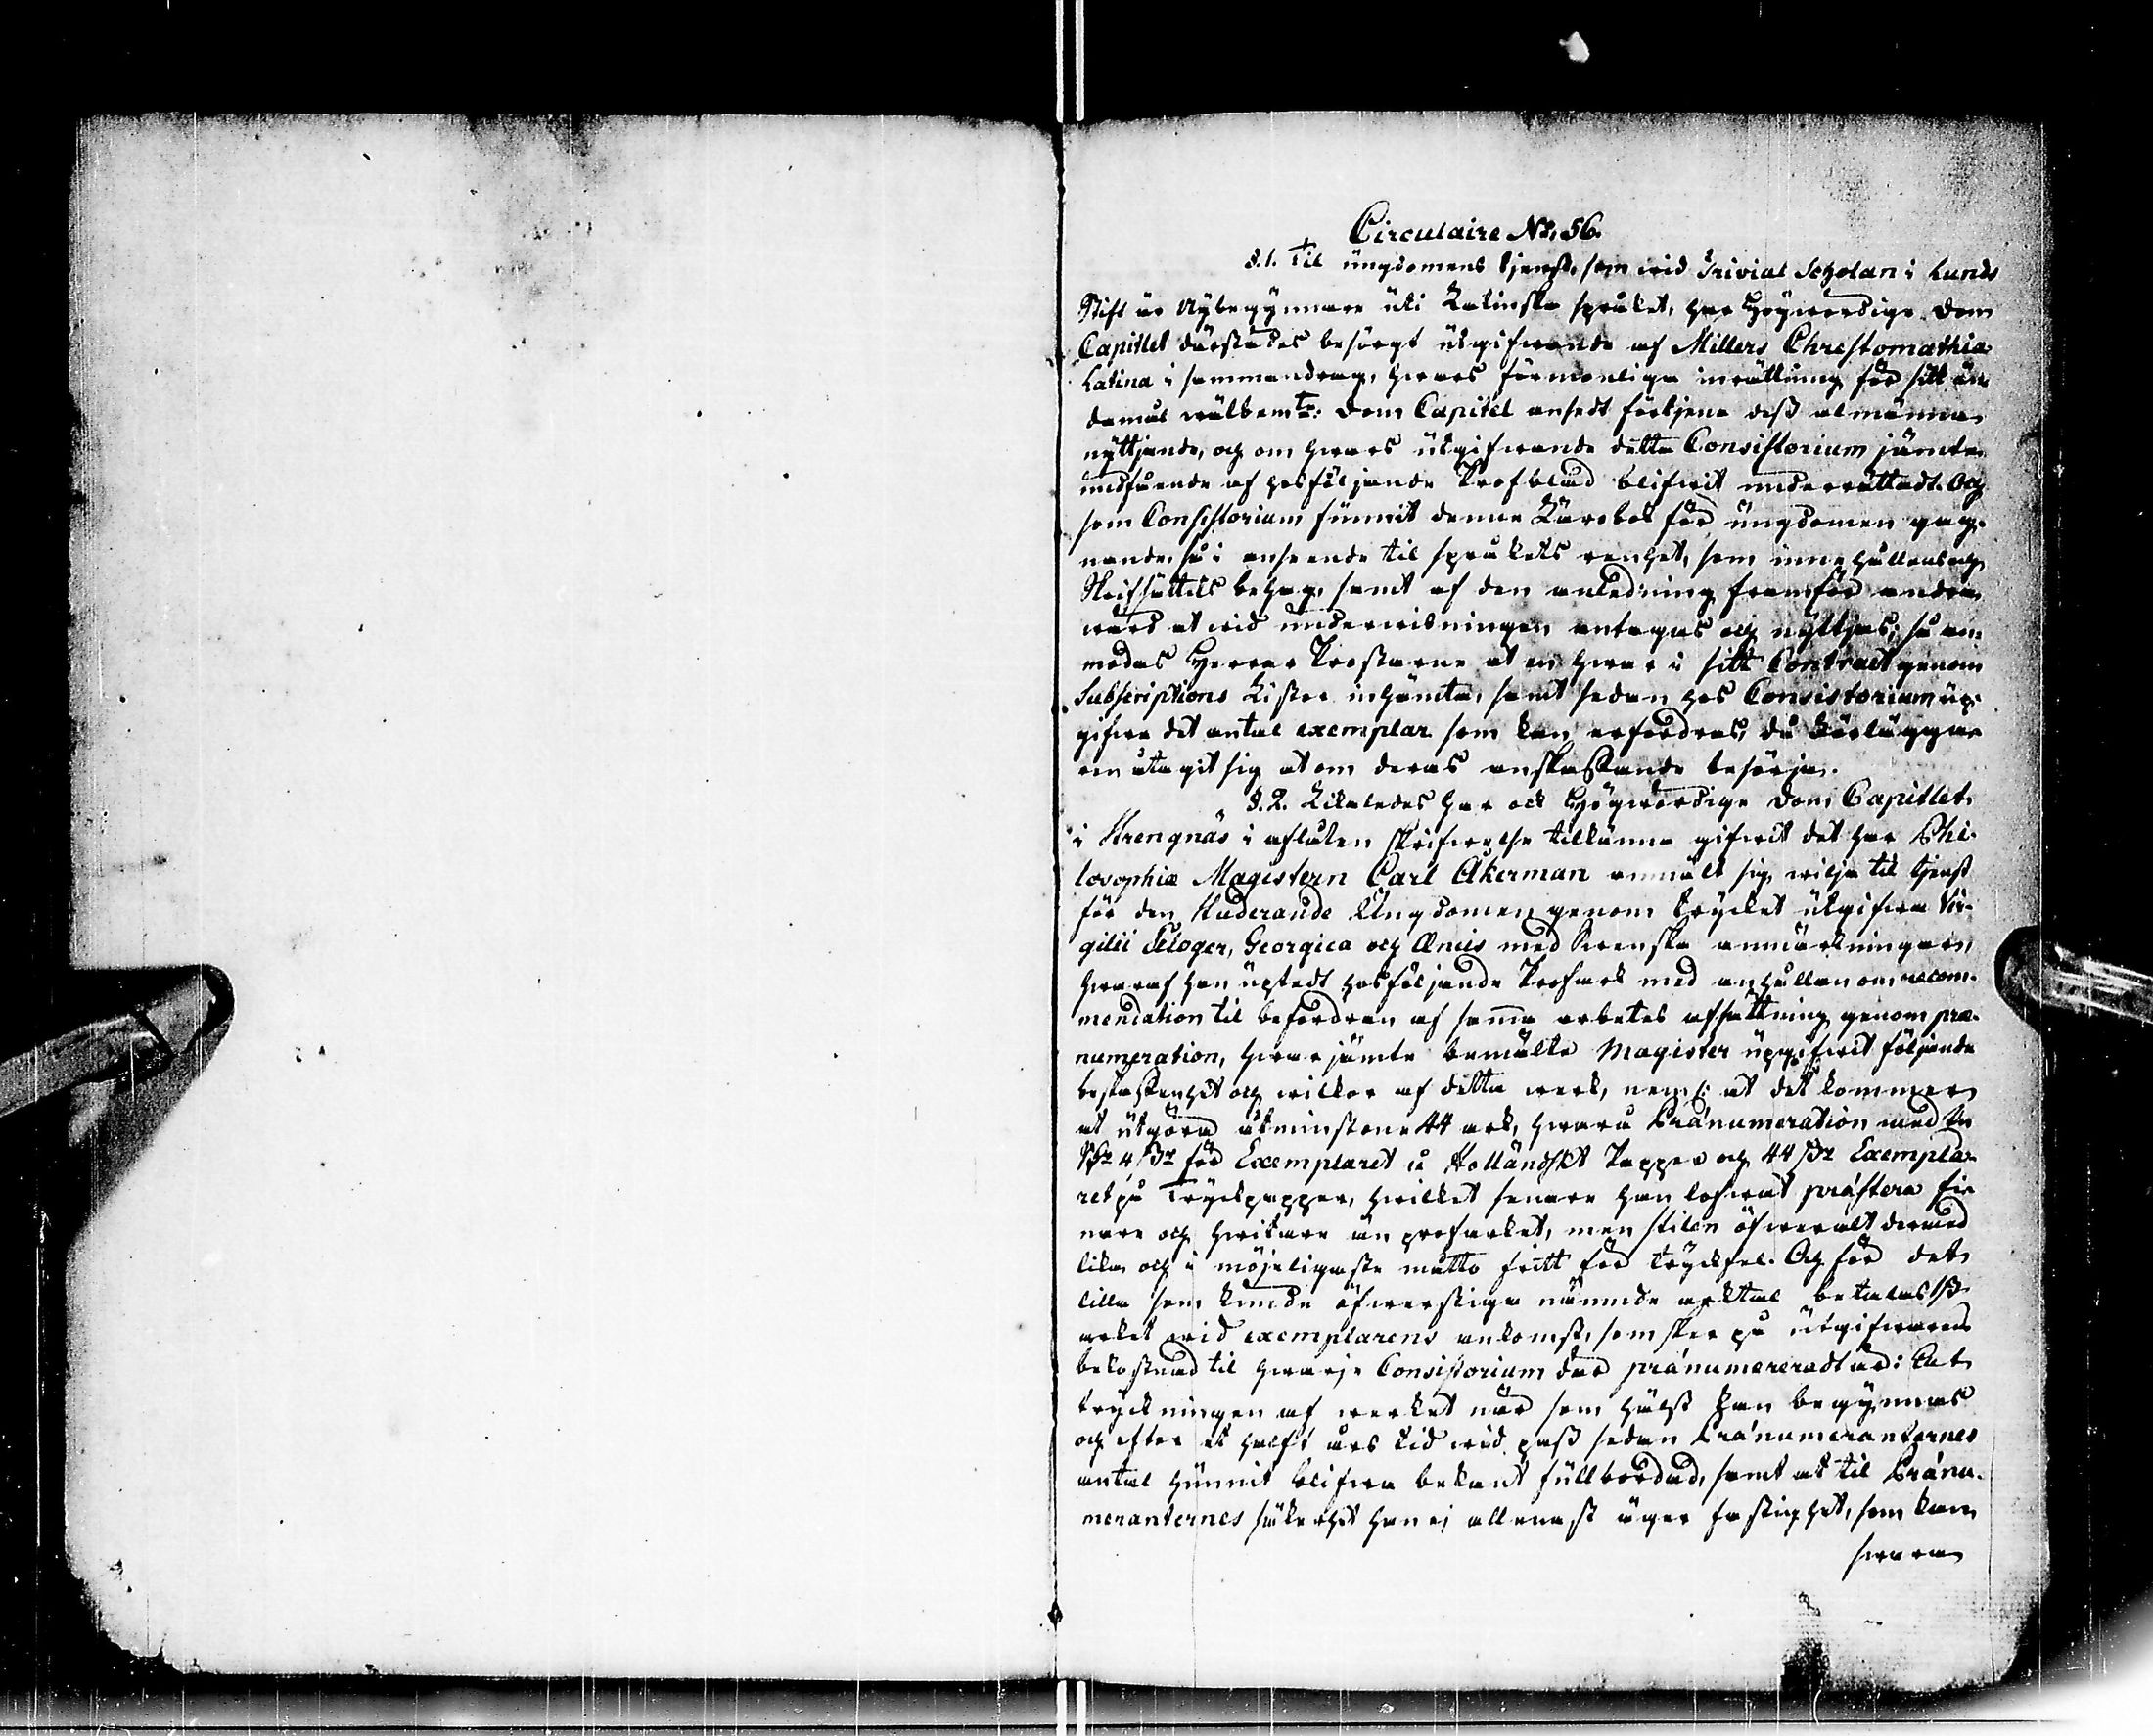 Circulaire No. 56.
§. 1. Til ungdomens tjenst, som wid Trivial Scholan i Lunds
Stift är Nybegynnare uti Latinska språket, har Högwördige Dom
Capitlet därstädes besörgt utgifwande af Millers Chrestomathia
Latina i sammandrag, hwars förmonliga inrättning för sitt än-
damål wälbemte: Dom Capitel ansedt förtjena dess almänna
nyttjande, och om hwars utgifwande detta Consistorium jämte
undfående af hosföljande Profblad blifwit underrättadt. Och
som Consistorium funnit denna Lärobok för ungdomen gag-
nande, så i anseende til språkets renhet, som innehållets och
Skrifsättets behag, samt af den anledning framför andra
wärd at wid underwisningen antagas och nyttjas; så an-
modas Herrar Prostarne at en hwar i sitt Contract genom
Subscriptions Listor inhämta, samt sedan hos Consistorium up-
gifwa det antal exemplar som kan erfordras, då Förläggar
en åtagit sig at om deras anskaffande besörja.
§. 2. Likaledes har ock Högwördige Dom Capitlet
i Strengnäs i aflåten skrifwelse tilkänna gifwit det har Phi-
losophiæ Magistern Carl Åkerman anmält sig wilja til tjenst
för den Studerande Ungdomen genom trycket utgifwa Vir-
gilii Ecloger, Georgica och Æneis med Swenska anmärkningar,
hwaraf han uptedt hosföljande Profark med anhållan om recom-
mendation til befordran af samma arbetes afsättning genom præ-
numeration, hwarjämte bemälte Magister upgifwit följande
beskaffenhet och wilkor af detta werk, neml: at det kommer
at utgöra åtminstone 44 ark, hwarå Pránumeration med En
Rdr 4 ßr för Exemplaret å Holländskt Papper och 44 ßr Exempla-
ret på Tryckpapper, hwilket senare han lofwat prästera fi-
nare och hwitare än profarket, men stilen öfweralt dermed
lika och i möjeligaste måtto fritt för tryckfel. Och för det
lilla som kunde öfwerstiga nämnde arktal betalas 1 ß
arket wid exemplarens ankomst, som sker på utgifwarens
bekostnad til hwarje Consistorium där pránumereradt är: At
tryckningen af werket när som hälst kan begynnas
och efter et halft års tid wid pass sedan Pránumeranternes
antal hunnit blifwa bekant fullbordad, samt at til Pránu-
meranternes säkerhet han ej allenast äger fastighet, som kan
swara